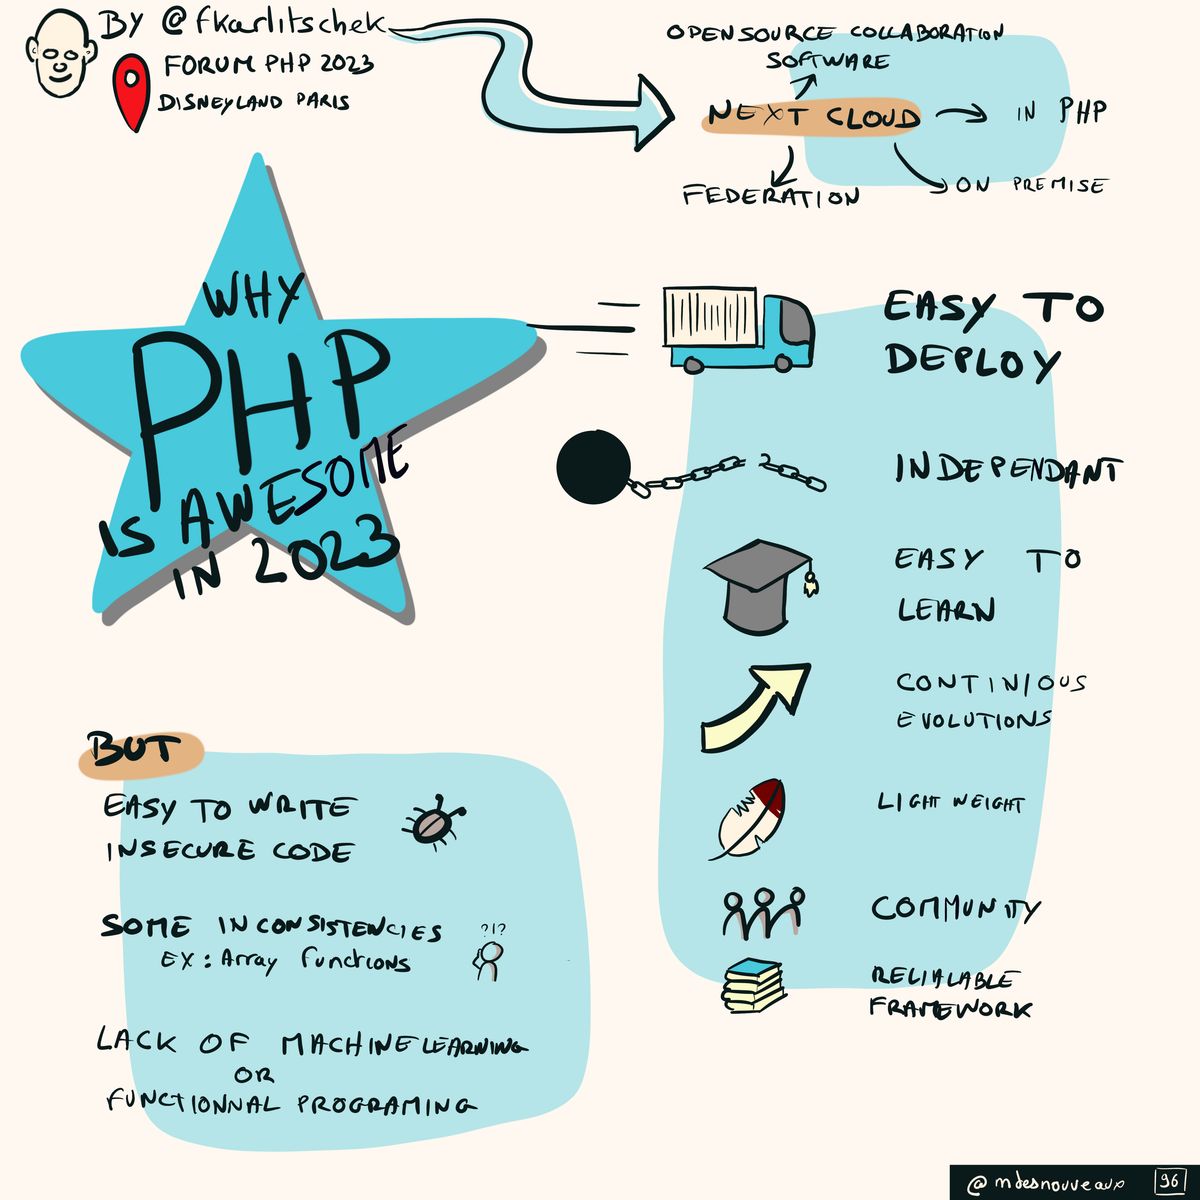 BY @fkarlitschek
FORUM PHP 2023
DISNEYLAND PARIS
OPENSOURCE COLLABORATION
SOFTWARE
NEXT CLOUD
IN PHP
FEDERATION
ON PREMISE
WHY
PHP
IS AWESOME
IN 2023
EASY TO
DEPLOY
INDEPENDANT
EASY TO
LEARN
CONTINIOUS
EVOLUTIONS
LIGHT WEIGHT
COMMUNITY
RELIALABLE
FRAMEWORK
BUT
EASY TO WRITE
INSECURE CODE
SOME INCONSISTENCIES
?!?
EX: Array functions
LACK OF MACHINE LEARNING
OR
FUNCTIONNAL PROGRAMING
@mdesnouveaux 96